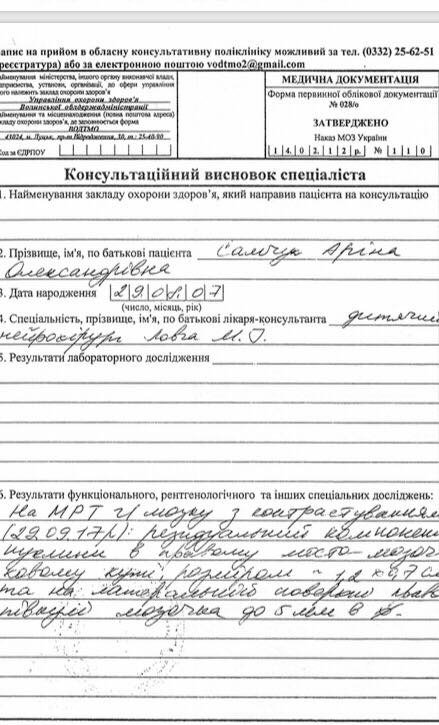 апис на прийом в обласну консультативну поліклініку можливий за тел. (0332) 25-62-51
реєстратура) або за електронною поштою vodtmo2@gmail.com
айменування міністерства, іншого органу виконавчої влади,
ідприємства, установи, організації, до сфери управління
ого належить заклад охорони здоров'я
Управління охорони здоров'я
Волинської облдержадміністрації
айменування та місцезнаходження (повна поштова адреса)
кладу охорони здоров'я, де заповнюється форма
ВОДТМО
43024, м. Луцьк, пр-т Відродження, 30, т.: 25-40-90
Код за ЄДРПОУ
МЕДИЧНА ДОКУМЕНТАЦІЯ
Форма первинної облікової документації
№ 028/о
ЗАТВЕРДЖЕНО
Наказ МОЗ України
1 4. 0 2. 1 2 р. № 1 1 0
Консультаційний висновок спеціаліста
1. Найменування закладу охорони здоров'я, який направив пацієнта на консультацію
2. Прізвище, ім'я, по батькові пацієнта Самчук Аріна
Олександрівна
3. Дата народження 2 9 0 8 0 7
(число, місяць, рік)
4. Спеціальність, прізвище, ім'я, по батькові лікаря-консультанта дитячий
нейрохірург М.
5. Результати лабораторного дослідження
6. Результати функціонального, рентгенологічного та інших спеціальних досліджень:
На МРТ г/мозку з контрастуванням
(29.09.17р): резидуальний компонен
пухлини в правому мосто-мозоч
ковому куті розміром ~ 1,2 х 0,7 см
та на латеральній поверхні прав
півкулі мозочка до 5 мм в